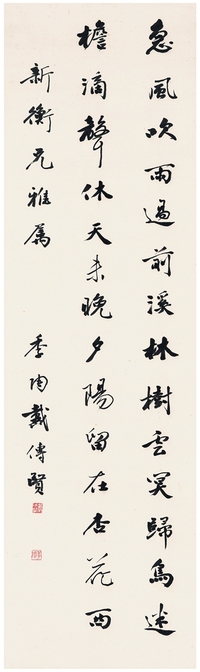 急風吹雨過前溪林樹雲冥歸鳥迷
檐滴聲休天未晚夕陽留在杏花西
新衡兄雅屬
季陶戴傳賢